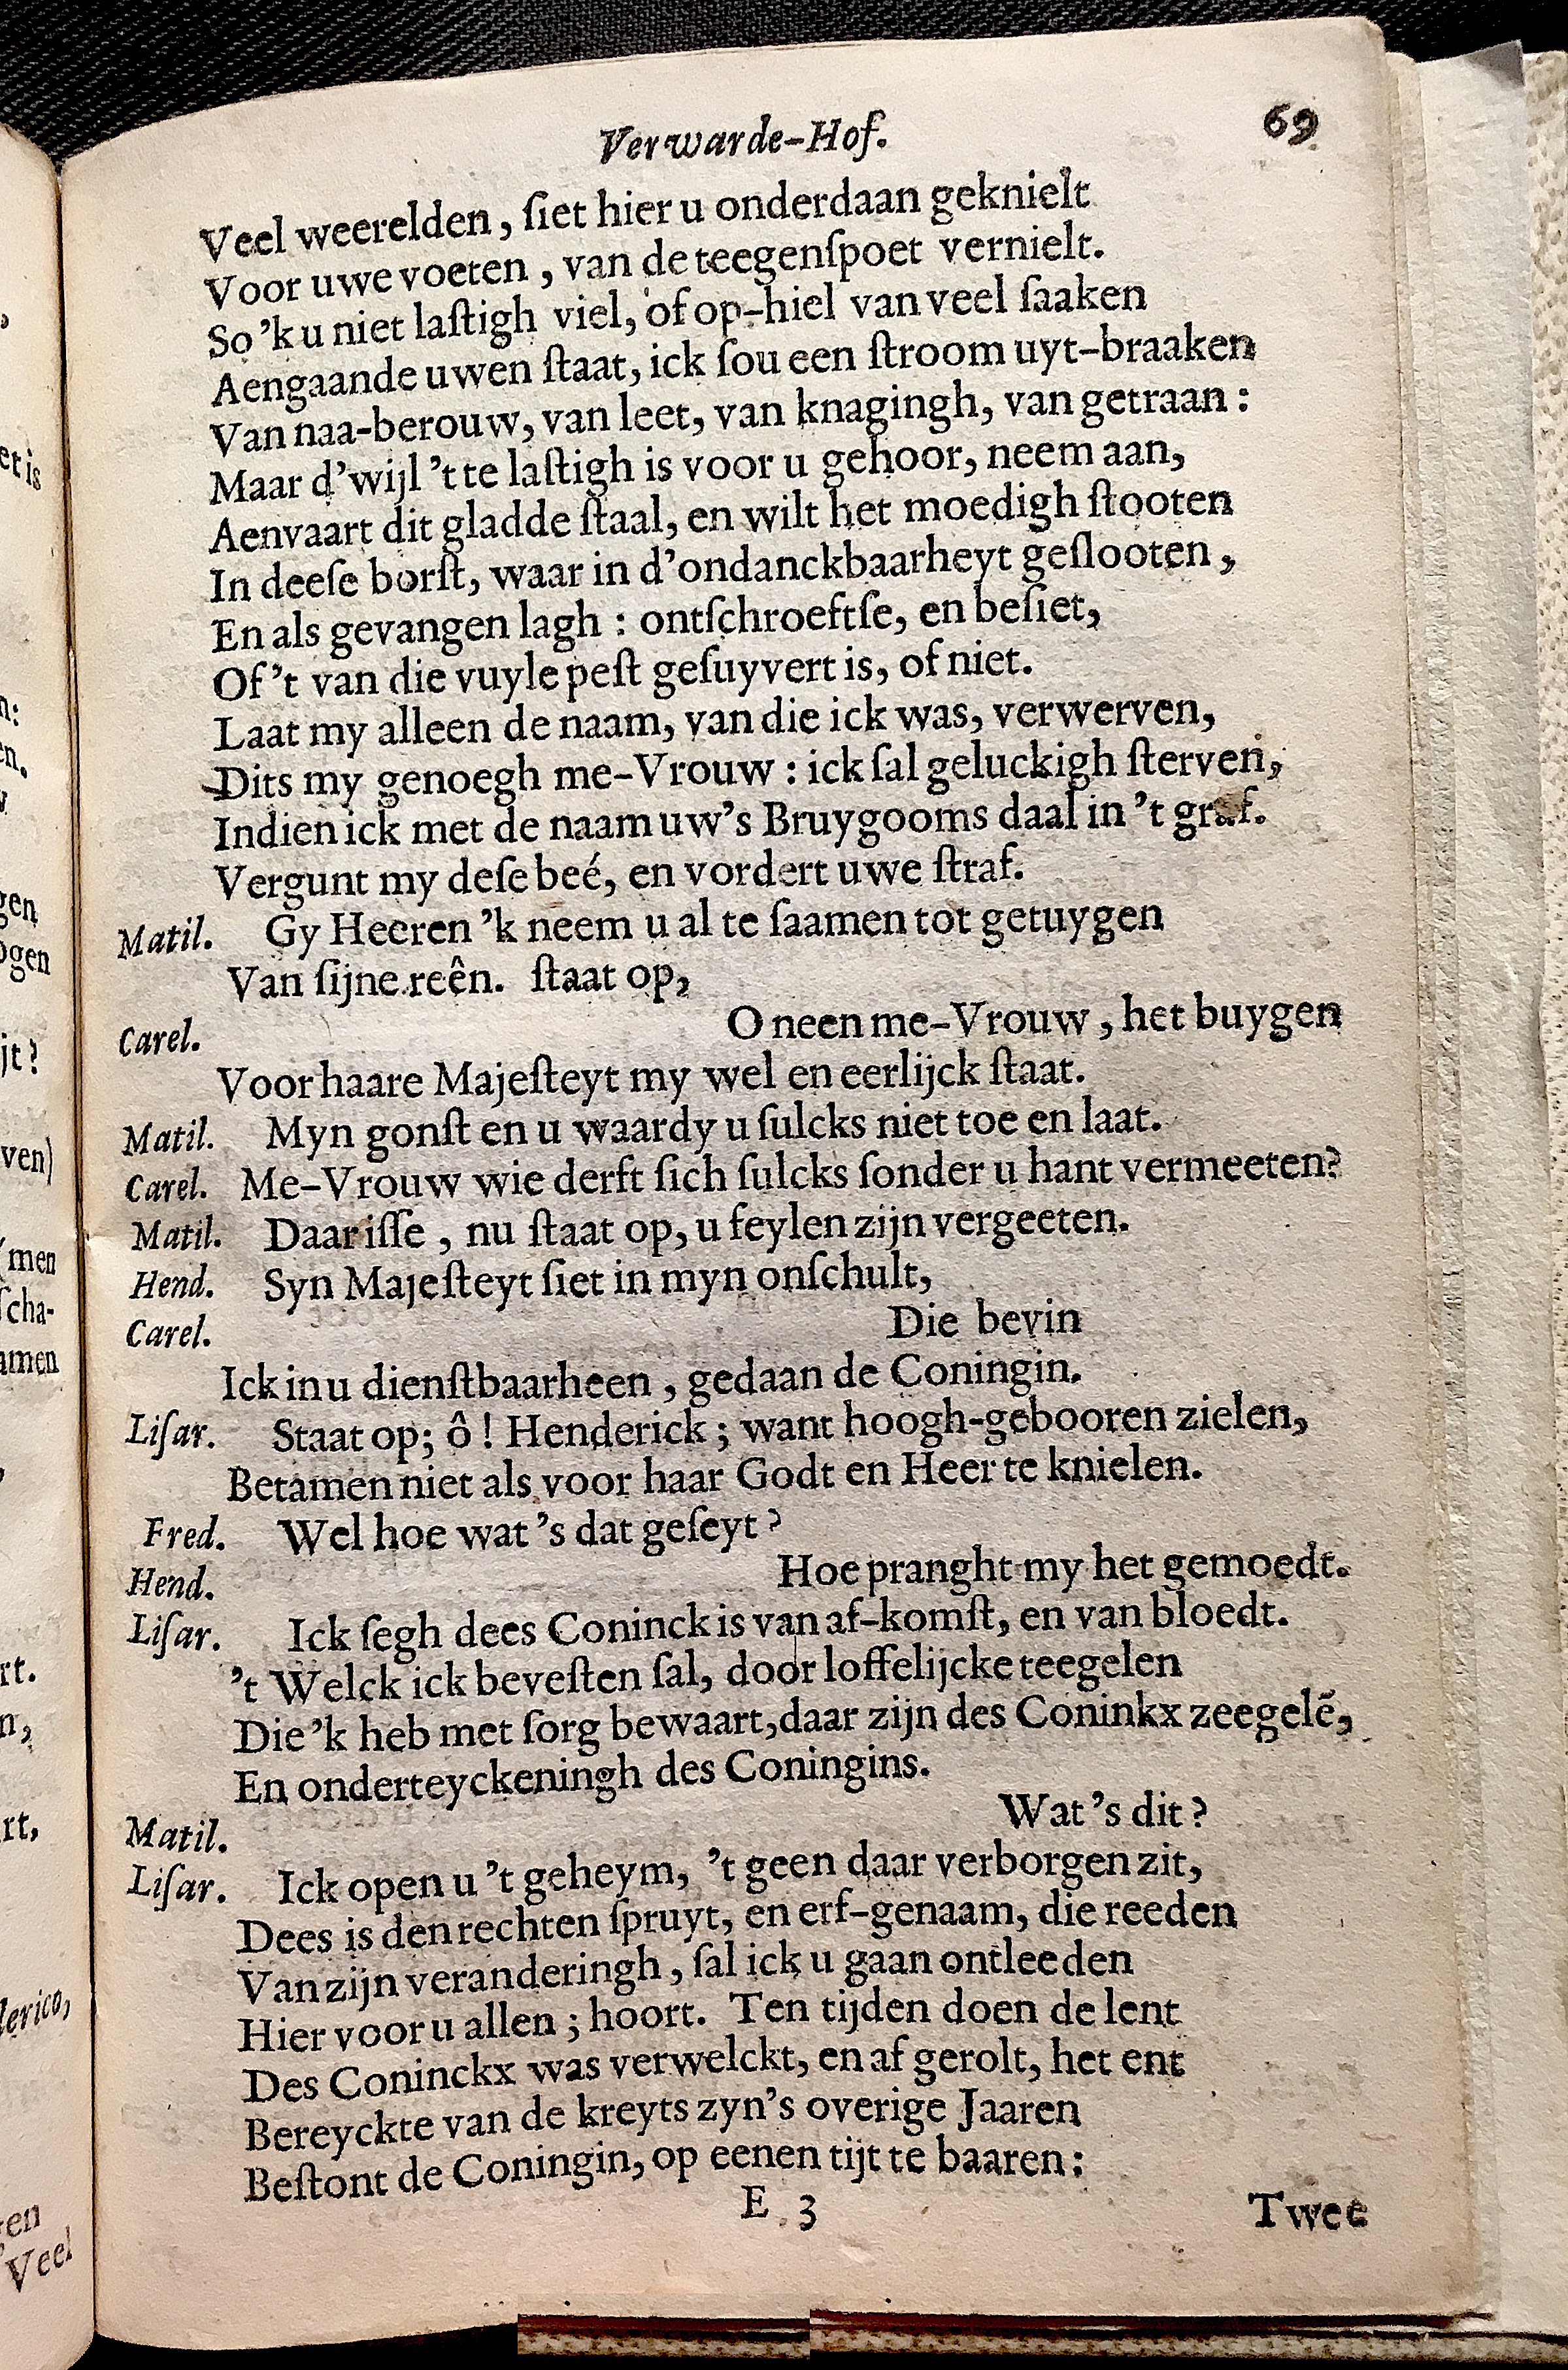 Verwarde-Hof. 69
Veel weerelden, ſiet hier u onderdaan geknielt
Voor uwe voeten, van de teegenſpoet vernielt.
So 'k u niet laſtigh viel, of op-hiel van veel ſaaken
Aengaande uwen ſtaat, ick ſou een ſtroom uyt-braaken
Van naa-berouw, van leet, van knagingh, van getraan:
Maar d'wijl 't te laſtigh is voor u gehoor, neem aan,
Aenvaart dit gladde ſtaal, en wilt het moedigh ſtooten
In deeſe borſt, waar in d'ondanckbaarheyt geſlooten,
En als gevangen lagh: ontſchroeftſe, en beſiet,
Of 't van die vuyle peſt geſuyvert is, of niet.
Laat my alleen de naam, van die ick was, verwerven,
Dits my genoegh me-Vrouw: ick ſal geluckigh ſterven,
Indien ick met de naam uw's Bruygooms daal in 't graf.
Vergunt my deſe beé, en vordert uwe ſtraf.
Matil. Gy Heeren 'k neem u al te ſaamen tot getuygen
Van ſijne reên. ſtaat op,
Carel. O neen me-Vrouw, het buygen
Voor haare Majeſteyt my wel en eerlijck ſtaat.
Matil. Myn gonſt en u waardy u ſulcks niet toe en laat.
Carel. Me-Vrouw wie derft ſich ſulcks ſonder u hant vermeeten?
Matil. Daar iſſe, nu ſtaat op, u feylen zijn vergeeten.
Hend. Syn Majeſteyt ſiet in myn onſchult,
Carel. Die bevin
Ick in u dienſtbaarheen, gedaan de Coningin.
Liſar. Staat op; ô! Henderick; want hoogh-gebooren zielen,
Betamen niet als voor haar Godt en Heer te knielen.
Fred. Wel hoe wat 's dat geſeyt?
Hend. Hoe pranght my het gemoedt.
Liſar. Ick ſegh dees Coninck is van af-komſt, en van bloedt.
't Welck ick beveſten ſal, door loffelijcke teegelen
Die 'k heb met ſorg bewaart, daar zijn des Coninkx zeegelē,
En onderteyckeningh des Coningins.
Matil. Wat 's dit?
Liſar. Ick open u 't geheym, 't geen daar verborgen zit,
Dees is den rechten ſpruyt, en erf-genaam, die reeden
Van zijn veranderingh, ſal ick u gaan ontleeden
Hier voor u allen; hoort. Ten tijden doen de lent
Des Coninckx was verwelckt, en af gerolt, het ent
Bereyckte van de kreyts zyn's overige Jaaren
Beſtont de Coningin, op eenen tijt te baaren:
E 3 Twee